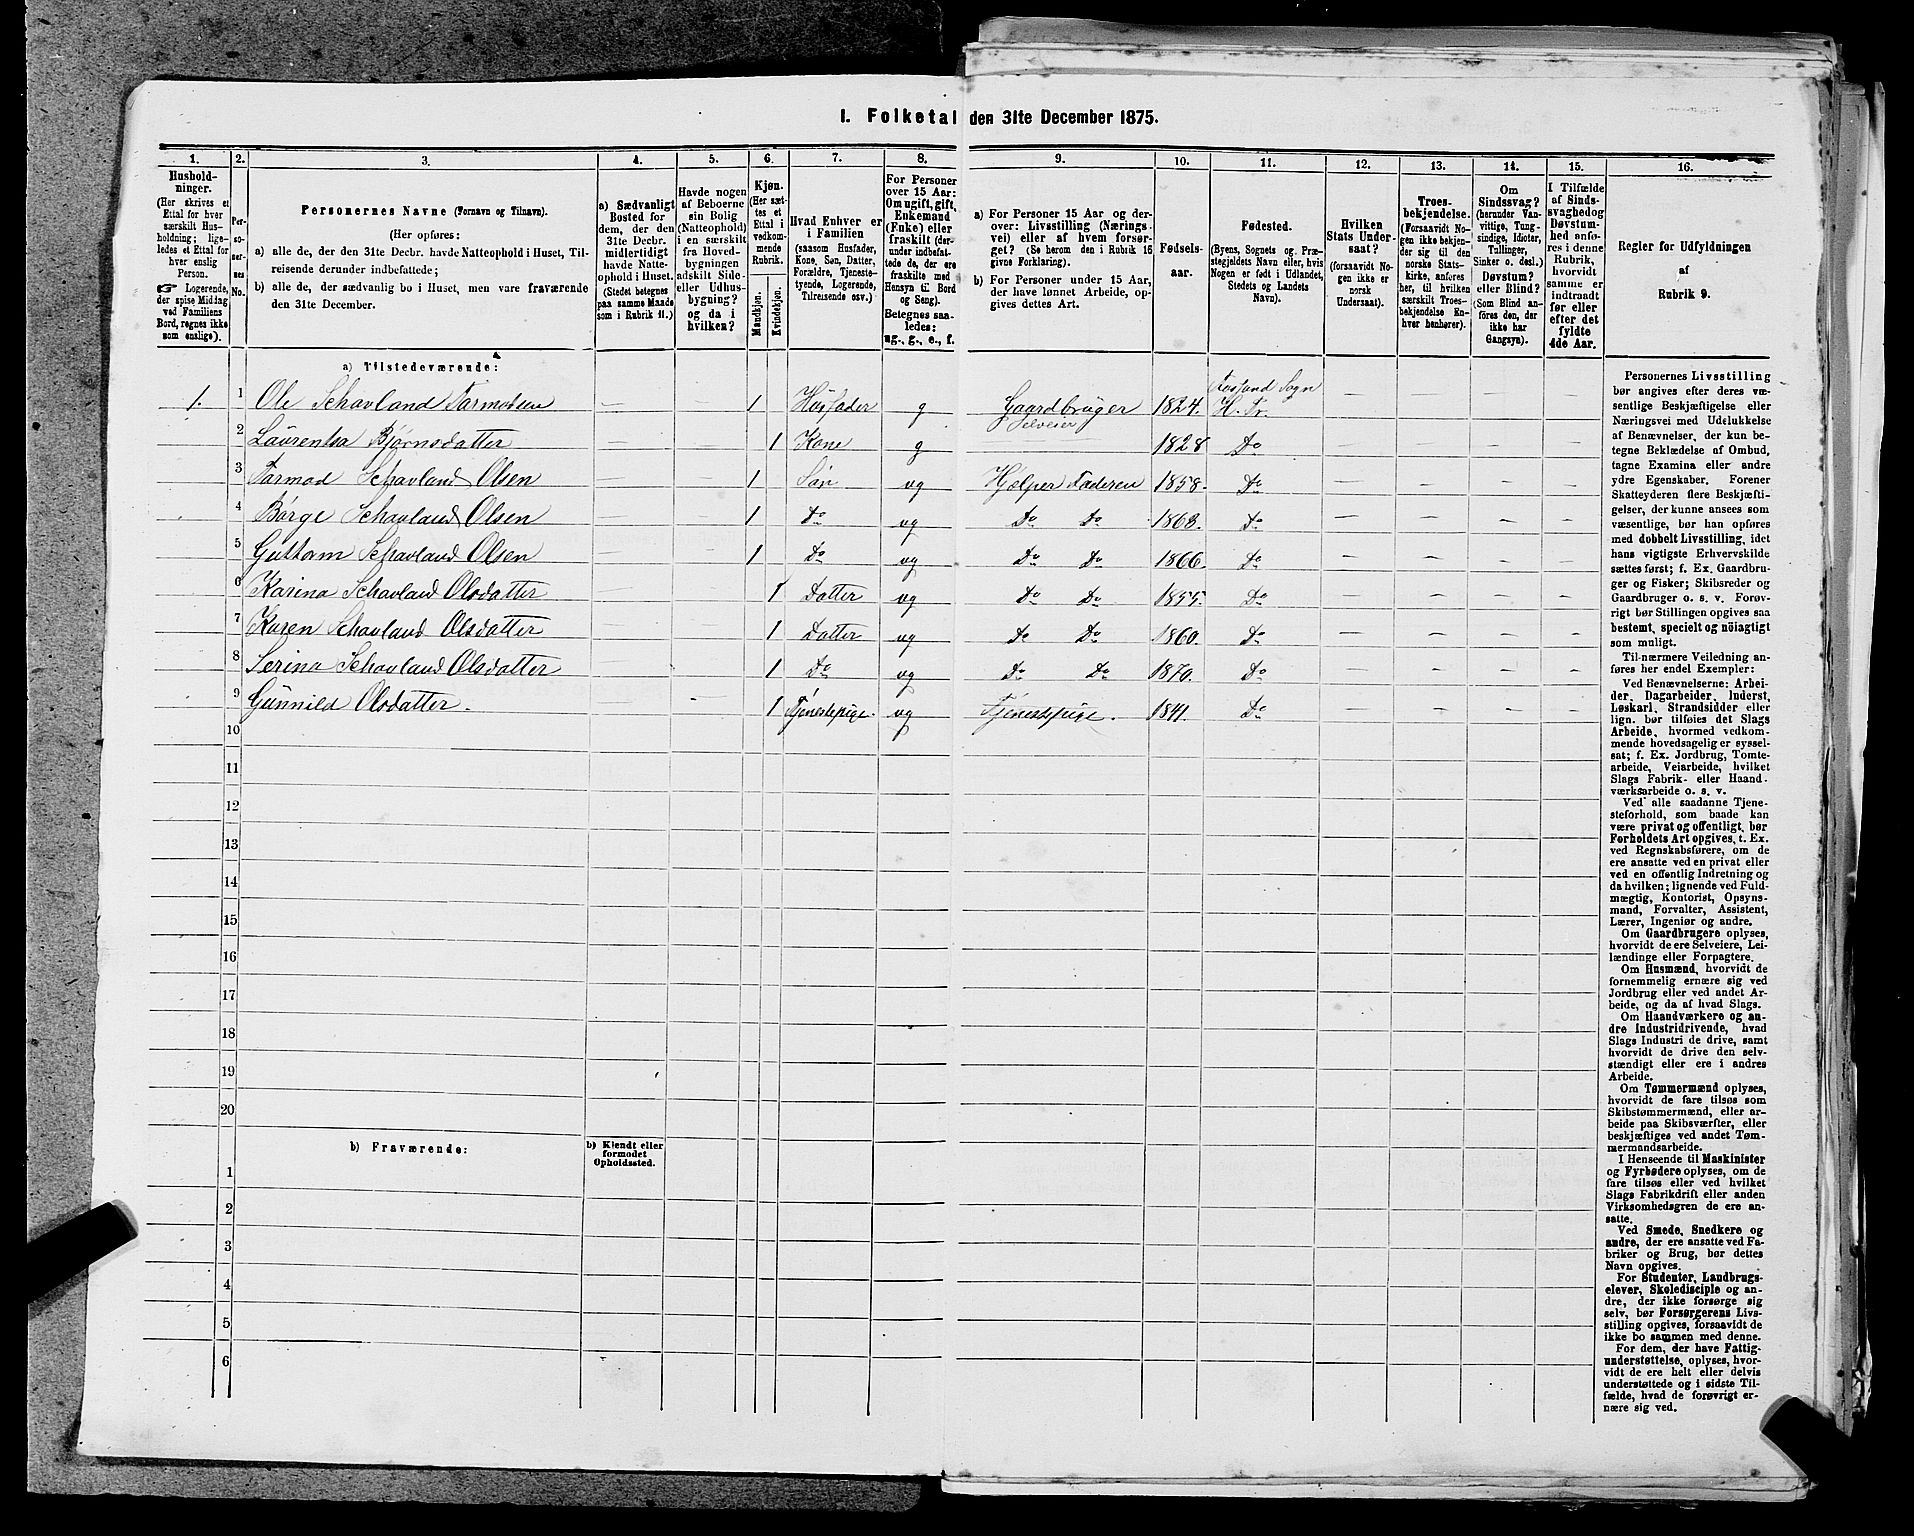 I. Folketal den 31te December 1875.
1. 2. 3. 4. 5. 6. 7. 8. 9. 10. 11. 12. 13. 14. 15. 16.
Husholdninger.
(Her skrives et
Ettal for hver
særskilt Hus-
holdning; lige-
ledes et Ettal for
hver enslig
Person.
☞ Logerende,
der spise Middag
ved Familiens
Bord, regnes ikke
som enslige).
Personernes No.
Personernes Navne (Fornavn og Tilnavn).
(Her opføres:
a) alle de, der den 31te Decbr. havde Natteophold i Huset, Til-
reisende derunder indbefattede;
b) alle de, der sædvanlig bo i Huset, men vare fraværende
den 31te December.
a) Sædvanligt
Bosted for
dem, der den
31te Decbr.
midlertidigt
havde Natte-
ophold i Huset.
(Stedet betegnes
paa samme Maade
som i Rubrik 11.)
Havde nogen
af Beboerne
sin Bolig
(Natteophold)
i en særskilt
fra Hoved-
bygningen
adskilt Side-
eller Udhus-
bygning?
og da i
hvilken?
Kjøn.
(Her sæt-
tes et
Ettal i
vedkom-
mende
Rubrik.
Mandkjøn.
Kvindekjøn.
Hvad Enhver er
i Familien
(saasom Husfader,
Kone, Søn, Datter,
Forældre, Tjeneste-
tyende, Logerende,
Tilreisende osv.)
For Personer
over 15 Aar:
Om ugift, gift,
Enkemand
(Enke) eller
fraskilt (der-
under indbefat-
tede de, der ere
fraskilte med
Hensyn til Bord
og Seng).
Betegnes saa-
ledes:
ug., g., e., f.
a) For Personer 15 Aar og der-
over: Livsstilling (Nærings-
vei) eller af hvem forsør-
get? (Se herom den i Rubrik 16
gives Forklaring).
b) For Personer under 15 Aar,
der have lønnet Arbeide, op-
gives dettes Art.
Fødsels-
aar.
Fødested.
(Byens, Sognets og Præ-
stegjeldets Navn eller, hvis
Nogen er født i Udlandet,
Stedets og Landets
Navn).
Hvilken
Stats Under-
saat?
(forsaavidt No-
gen ikke er
norsk
Undersaat).
Troes-
bekjendelse.
(Forsaavidt No-
gen ikke bekjen-
der sig til den
norske Stats-
kirke, anføres
her, til hvilken
særskilt Troes-
bekjendelse En-
hver henhører).
Om
Sindssvag?
(herunder Van-
vittige, Tung-
sindige, Idioter,
Tullinger,
Sinker o. desl.)
Døvstum?
eller Blind?
(Som Blind an-
føres den, der
ikke har
Gangsyn).
I Tilfælde
af Sinds-
svaghed og
Døvstum-
hed anfø-
res i denne
Rubrik,
hvorvidt
samme er
indtraadt
før eller
efter det
fyldte
4de Aar.
Regler for Udfyldningen
af
Rubrik 9.
a) Tilstedeværende:
1. 1 Ole Schavland Tarmodsen — — 1 Husfader g Gaardbruger Selveier 1824. Fossand Sogn H. Pr. — — — —
2 Laurentsa Bjørnsdatter — — 1 Kone g 1828 Do — — — —
3 Tarmod Schavland Olsen — — 1 Søn ug Hjelper Faderen 1858. Do — — — —
4 Børge Schavland Olsen — — 1 Do ug Do Do 1863. Do — — — —
5 Guttorm Schavland Olsen — — 1 Do ug Do Do 1866. Do — — — —
6 Karina Schavland Olsdatter — — 1 Datter ug Do Do 1855. Do — — — —
7 Karen Schavland Olsdatter — — 1 Datter ug Do Do 1860. Do — — — —
8 Serina Schavland Olsdatter — — 1 Do ug Do Do 1870. Do — — — —
9 Gunnild Olsdatter. — — 1 Tjenestepige. ug Tjenestepige. 1841. Do — — — —
10
11
12
13
14
15
16
17
18
19
20
b) Fraværende:
b) Kjendt eller
formodet
Opholdssted.
1
2
3
4
5
6
Personernes Livsstilling
bør angives efter deres væ-
sentlige Beskjæftigelse eller
Næringsvei med Udelukkelse
af Benævnelser, der kun be-
tegne Beklædelse af Ombud,
tagne Examina eller andre
ydre Egenskaber. Forener
Skatteyderen flere Beskjæfti-
gelser, der kunne ansees som
væsentlige, bør han opføres
med dobbelt Livsstilling, idet
hans vigtigste Erhvervskilde
sættes først; f. Ex. Gaardbru-
ger og Fisker; Skibsreder og
Gaardbruger o. s. v. Forøv-
rigt bør Stillingen opgives saa
bestemt, specielt og nöiagtigt
som muligt.
Til nærmere Veiledning an-
føres her endel Exempler:
Ved Benævnelserne: Arbei-
der, Dagarbeider, Inderst,
Løskarl, Strandsidder eller
lign. bør tilføies det Slags
Arbeide, hvormed vedkom-
mende hovedsagelig er syssel-
sat; f. Ex. Jordbrug, Tomte-
arbeide, Veiarbeide, hvilket
Slags Fabrik- eller Haand-
værksarbeide o. s. v.
Ved alle saadanne Tjene-
steforhold, som baade kan
være privat og offentligt, bør
Forholdets Art opgives, t. Ex.
ved Regnskabsførere, om de
ere ansatte ved en privat eller
ved en offentlig Indretning og
da hvilken; lignende ved Fuld-
mægtig, Kontorist, Opsyns-
mand, Forvalter, Assistent,
Lærer, Ingeniør og andre.
Om Gaardbrugere oplyses,
hvorvidt de ere Selveiere, Lei-
lændinge eller Forpagtere.
Om Husmænd, hvorvidt de
fornemmelig ernære sig ved
Jordbrug eller ved andet Ar-
beide, og da af hvad Slags.
Om Haandværkere og an-
dre Industridrivende, hvad
Slags Industri de drive, samt
hvorvidt de drive den selv-
stændigt eller ere i andres
Arbeide.
Om Tømmermænd oplyses,
hvorvidt de fare tilsøs som
Skibstømmermænd, eller ar-
beide paa Skibsværfter, eller
beskjæftiges ved andet Tøm-
mermandsarbeide.
I Henseende til Maskinister
og Fyrbødere oplyses, om de
fare tilsøs eller ved hvilket
Slags Fabrikdrift eller anden
Virksomhedsgren de ere an-
satte.
Ved Smede, Snedkere og
andre, der ere ansatte ved Fa-
briker og Brug, bør dettes
Navn opgives.
For Studenter, Landbrugs-
elever, Skoledisciple og an-
dre, der ikke forsørge sig
selv, bør Forsørgerens Livs-
stilling opgives, forsaavidt de
ikke bo sammen med denne.
For dem, der have Fattig-
understøttelse, oplyses, hvor-
vidt de ere helt eller delvis
understøttede og i sidste Til-
fælde, hvad de forøvrigt er-
nære sig ved.